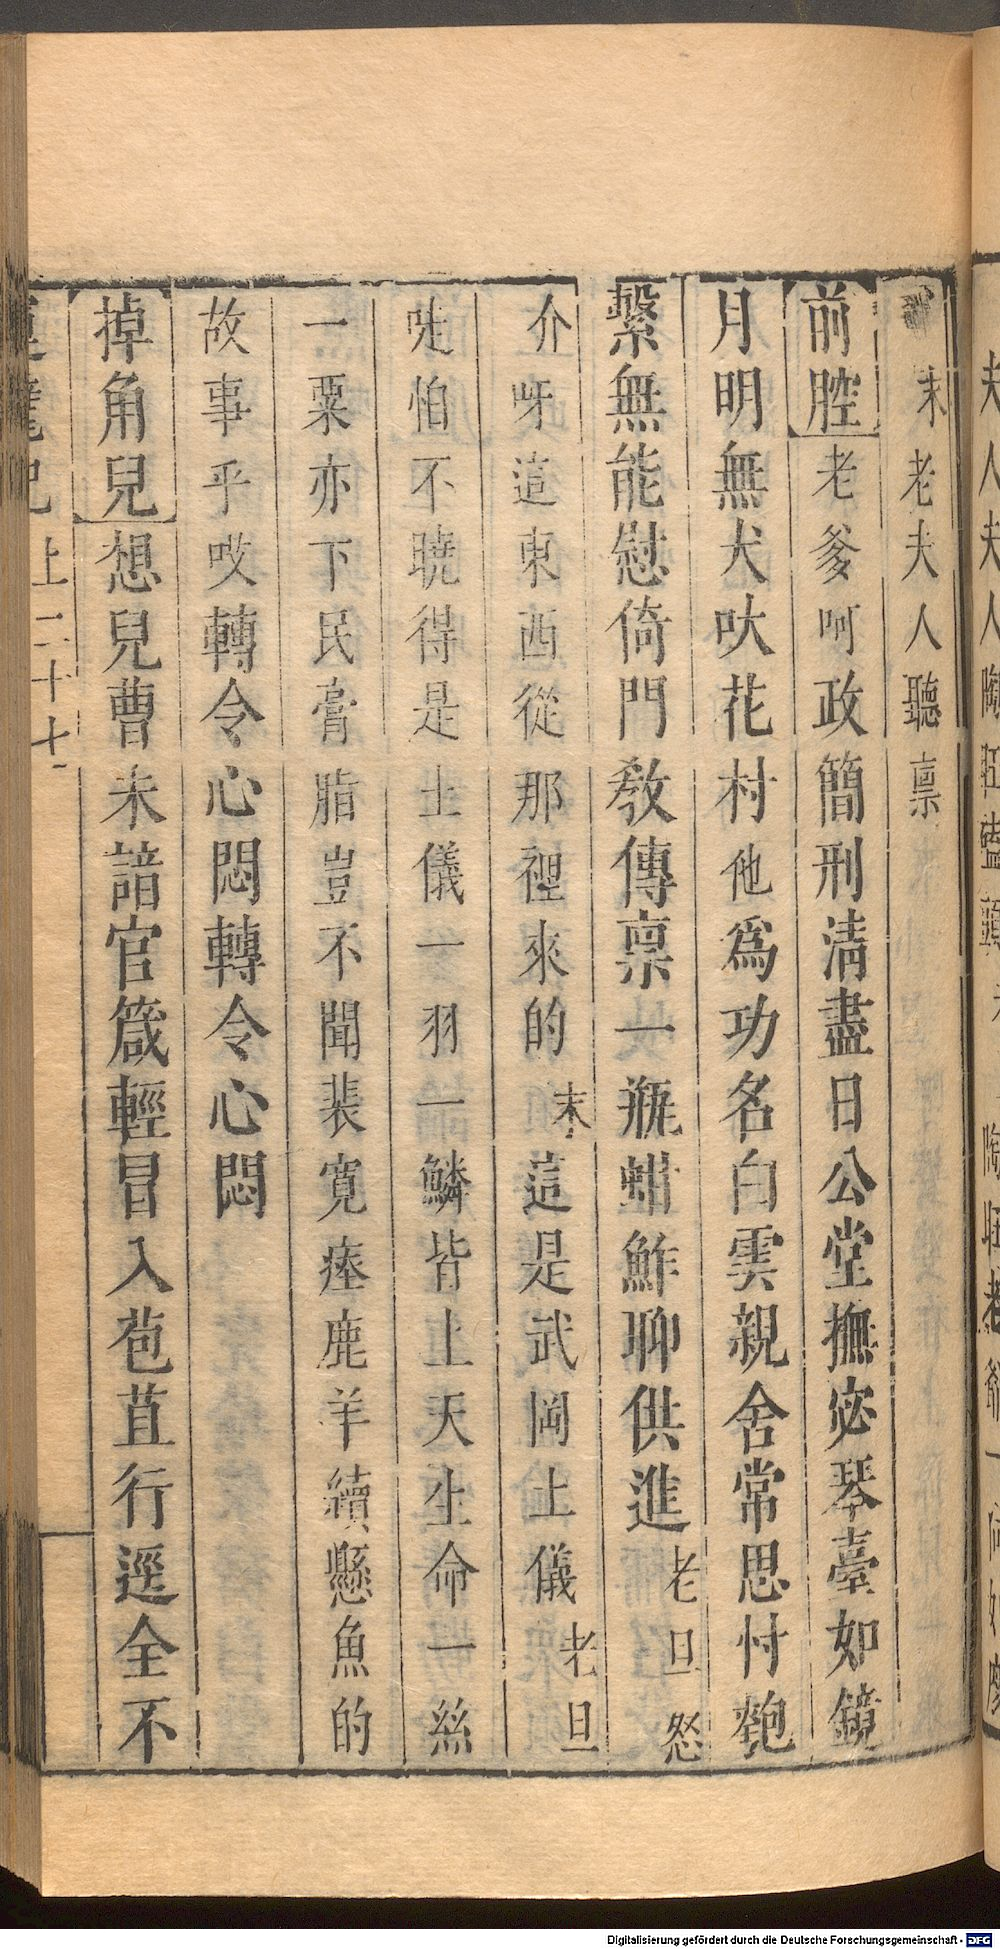 末老夫人聽禀
前腔老爹呵政簡刑清盡日公堂撫宓琴臺如鏡
月明無犬吠花村他爲功名白雲親舍常思忖匏
繫無能慰倚門教傳禀一瓶蚶鮓聊供進老旦怒
介呀這東西從那裡來的末這是武岡土儀老旦
唗怕不曉得是土儀一羽一鱗皆上天生命一絲
一粟亦下民膏脂豈不聞裴寛瘞鹿羊續懸魚的
故事乎哎轉令心悶轉令心悶
掉角兒想兒曹未諳官箴輕冒入苞苴行逕全不
上二十七
夫人夫人陶
Digitalisierung gefördert durch die Deutsche Forschungsgemeinschaft - DFG